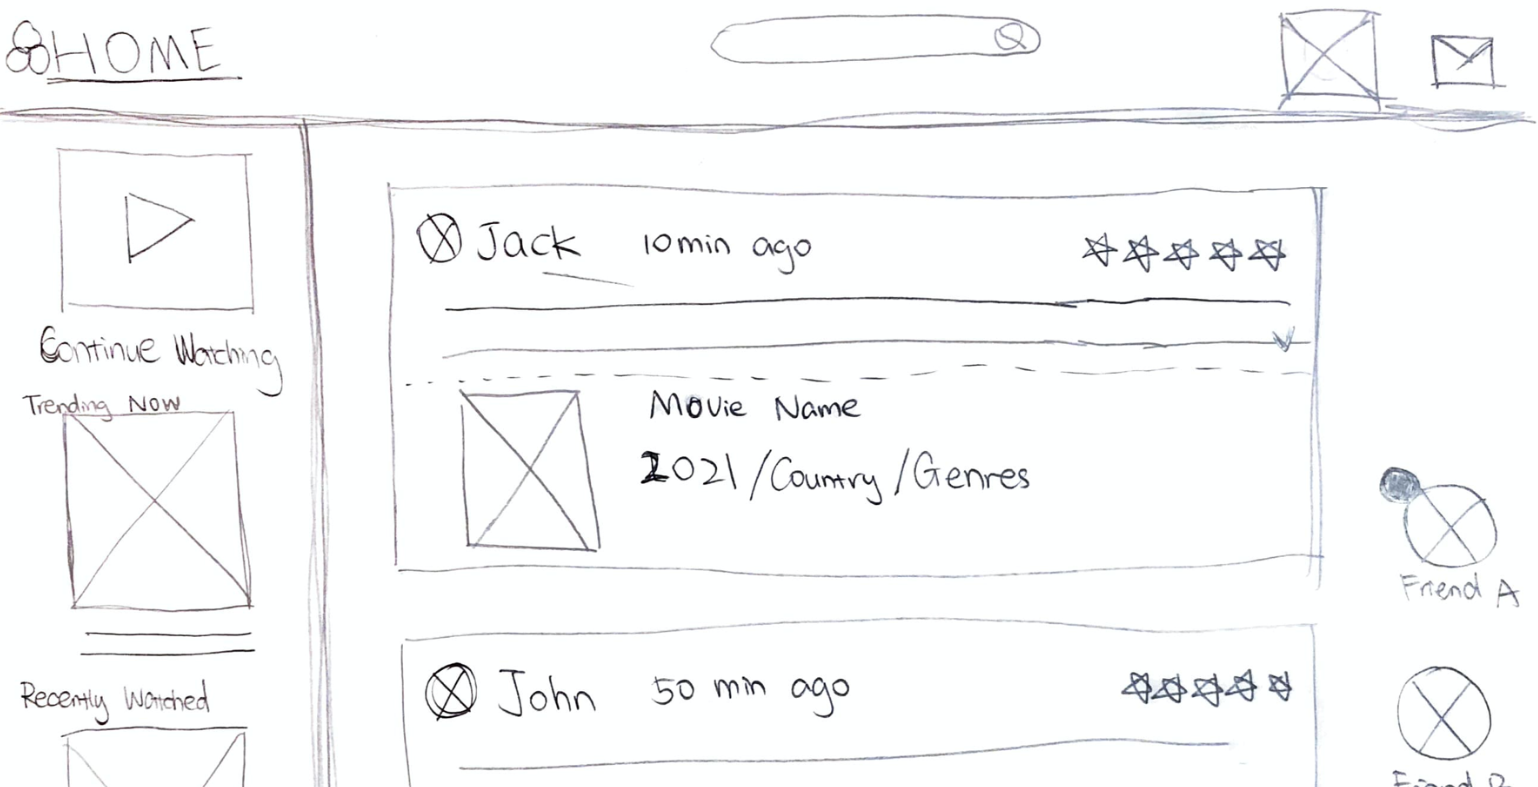 HOME
Continue Watching
Trending Now
Recently Watched
Jack 10min ago
Movie Name
2021/Country/Genres
John 50 min ago
Friend A
Friend